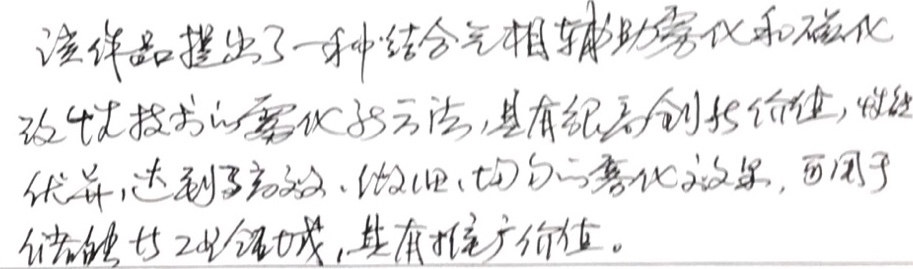 该作品提出了一种结合气相辅助雾化和磁化
改性技术的雾化新方法,具有很高创新价值,性能
优异,达到了高效、微细、均匀的雾化效果,可用于
储能与工业领域,具有推广价值。